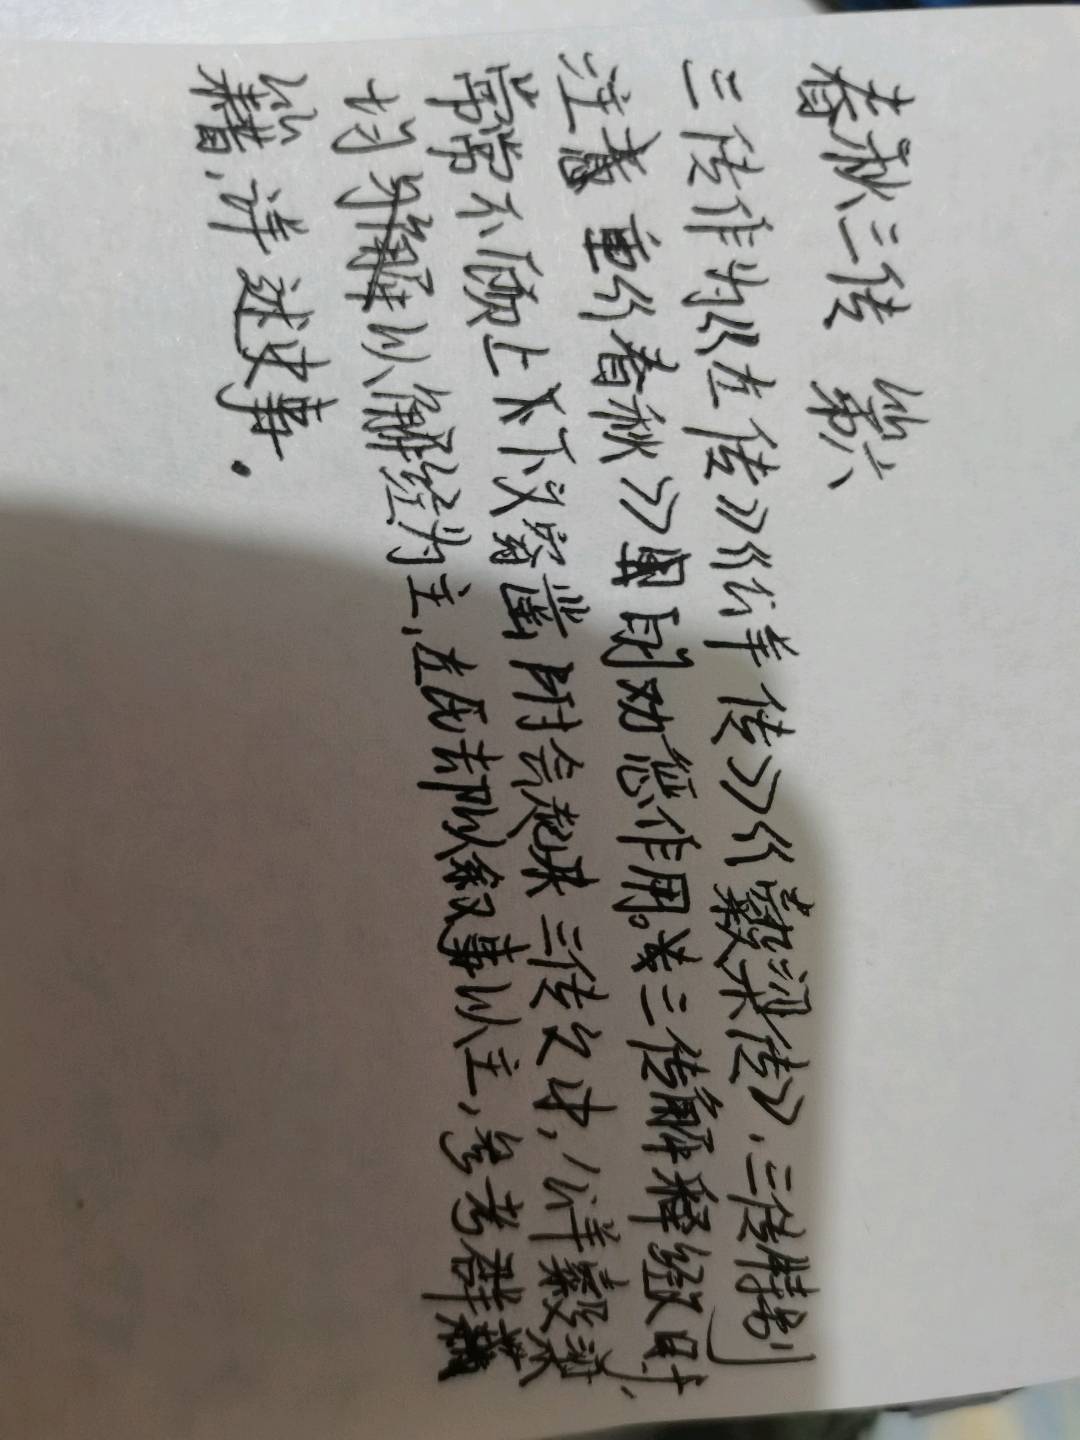 春秋三传 第六
三传作为《左传》《公羊传》《穀梁传》,三传特别
注意重《春秋》里的劝惩作用。三传解释经文时,
常常不顾上下文穿凿附会起来 三传之中,公羊穀梁
均以解经为主,左氏却以叙事以主,参考群
籍,详述史事.